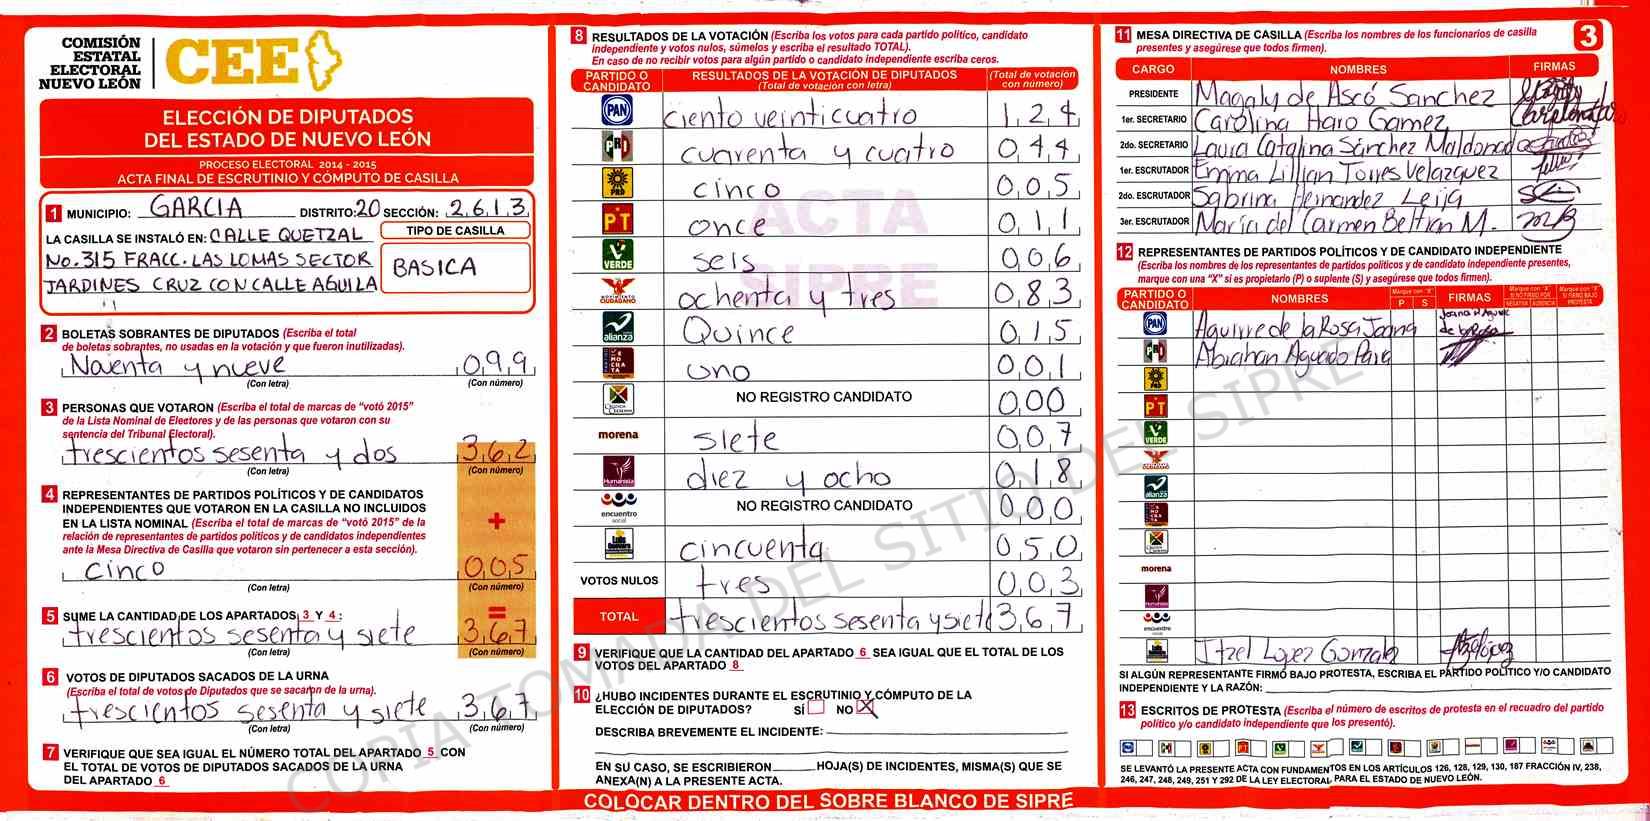 COMISIÓN
ESTATAL
ELECTORAL
NUEVO LEÓN
CEE
ELECCIÓN DE DIPUTADOS
DEL ESTADO DE NUEVO LEÓN
PROCESO ELECTORAL 2014 - 2015
ACTA FINAL DE ESCRUTINIO Y CÓMPUTO DE CASILLA
1 MUNICIPIO: GARCIA DISTRITO: 20 SECCIÓN: 2613
LA CASILLA SE INSTALÓ EN: CALLE QUETZAL
No. 315 FRACC. LAS LOMAS SECTOR
JARDINES CRUZ CON CALLE AGUILA
TIPO DE CASILLA
BASICA
2 BOLETAS SOBRANTES DE DIPUTADOS (Escriba el total
de boletas sobrantes, no usadas en la votación y que fueron inutilizadas).
Noventa y nueve 099
(Con letra) (Con número)
3 PERSONAS QUE VOTARON (Escriba el total de marcas de "votó 2015"
de la Lista Nominal de Electores y de las personas que votaron con su
sentencia del Tribunal Electoral).
trescientos sesenta y dos 362
(Con letra) (Con número)
4 REPRESENTANTES DE PARTIDOS POLÍTICOS Y DE CANDIDATOS
INDEPENDIENTES QUE VOTARON EN LA CASILLA NO INCLUIDOS
EN LA LISTA NOMINAL (Escriba el total de marcas de "votó 2015" de la
relación de representantes de partidos políticos y de candidatos independientes
ante la Mesa Directiva de Casilla que votaron sin pertenecer a esta sección).
+
cinco 005
(Con letra) (Con número)
5 SUME LA CANTIDAD DE LOS APARTADOS 3 Y 4 : =
trescientos sesenta y siete 367
(Con letra) (Con número)
6 VOTOS DE DIPUTADOS SACADOS DE LA URNA
(Escriba el total de votos de Diputados que se sacaron de la urna).
trescientos sesenta y siete 367
(Con letra) (Con número)
7 VERIFIQUE QUE SEA IGUAL EL NÚMERO TOTAL DEL APARTADO 5 CON
EL TOTAL DE VOTOS DE DIPUTADOS SACADOS DE LA URNA
DEL APARTADO 6
8 RESULTADOS DE LA VOTACIÓN (Escriba los votos para cada partido político, candidato
independiente y votos nulos, súmelos y escriba el resultado TOTAL).
En caso de no recibir votos para algún partido o candidato independiente escriba ceros.
PARTIDO O CANDIDATO RESULTADOS DE LA VOTACIÓN DE DIPUTADOS (Total de votación con letra) (Total de votación con número)
PAN ciento veinticuatro 124
PRI cuarenta y cuatro 044
PRD cinco 005
PT once 011
VERDE seis 006
MOVIMIENTO CIUDADANO ochenta y tres 083
alianza Quince 015
DEMOCRATA uno 001
CRUZADA CIUDADANA NO REGISTRO CANDIDATO 000
morena siete 007
Humanista diez y ocho 018
encuentro social NO REGISTRO CANDIDATO 000
Luis Guevara cincuenta 050
VOTOS NULOS tres 003
TOTAL trescientos sesenta y siete 367
ACTA
SIPRE
9 VERIFIQUE QUE LA CANTIDAD DEL APARTADO 6 SEA IGUAL QUE EL TOTAL DE LOS
VOTOS DEL APARTADO 8
10 ¿HUBO INCIDENTES DURANTE EL ESCRUTINIO Y CÓMPUTO DE LA
ELECCIÓN DE DIPUTADOS? SÍ NO X
DESCRIBA BREVEMENTE EL INCIDENTE:
EN SU CASO, SE ESCRIBIERON HOJA(S) DE INCIDENTES, MISMA(S) QUE SE
ANEXA(N) A LA PRESENTE ACTA.
COLOCAR DENTRO DEL SOBRE BLANCO DE SIPRE
COPIA TOMADA DEL SITIO DEL SIPRE
11 MESA DIRECTIVA DE CASILLA (Escriba los nombres de los funcionarios de casilla
presentes y asegúrese que todos firmen).
3
CARGO NOMBRES FIRMAS
PRESIDENTE Magaly de Ascó Sanchez
1er. SECRETARIO Carolina Haro Gamez
2do. SECRETARIO Laura Catalina Sánchez Maldonado
1er. ESCRUTADOR Emma Lillian Torres Velazquez
2do. ESCRUTADOR Sabrina Hernandez Leija
3er. ESCRUTADOR María del Carmen Beltran M.
12 REPRESENTANTES DE PARTIDOS POLÍTICOS Y DE CANDIDATO INDEPENDIENTE
(Escriba los nombres de los representantes de partidos políticos y de candidato independiente presentes,
marque con una "X" si es propietario (P) o suplente (S) y asegúrese que todos firmen).
PARTIDO O CANDIDATO NOMBRES Marque con "X" P S FIRMAS Marque con "X" SI NO FIRMÓ POR NEGATIVA AUSENCIA Marque con "X" SI FIRMÓ BAJO PROTESTA
PAN Aguirre de la Rosa Joana
PRI Abrahan Aguado Para
PRD
PT
VERDE
alianza
morena
Humanista
encuentro social
Itzel Lopez Gonzalez
SI ALGÚN REPRESENTANTE FIRMÓ BAJO PROTESTA, ESCRIBA EL PARTIDO POLÍTICO Y/O CANDIDATO
INDEPENDIENTE Y LA RAZÓN:
13 ESCRITOS DE PROTESTA (Escriba el número de escritos de protesta en el recuadro del partido
político y/o candidato independiente que los presentó).
SE LEVANTÓ LA PRESENTE ACTA CON FUNDAMENTOS EN LOS ARTÍCULOS 126, 128, 129, 130, 187 FRACCIÓN IV, 238,
246, 247, 248, 249, 251 Y 292 DE LA LEY ELECTORAL PARA EL ESTADO DE NUEVO LEÓN.